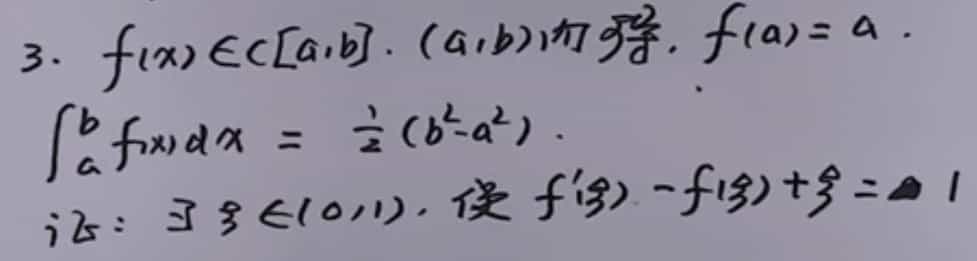 3. f(x)∈C[a,b]. (a,b)内可导. f(a)=a.
∫ₐᵇ f(x)dx = ½(b²-a²).
证: ∃ξ∈(0,1). 使 f'(ξ)-f(ξ)+ξ=1